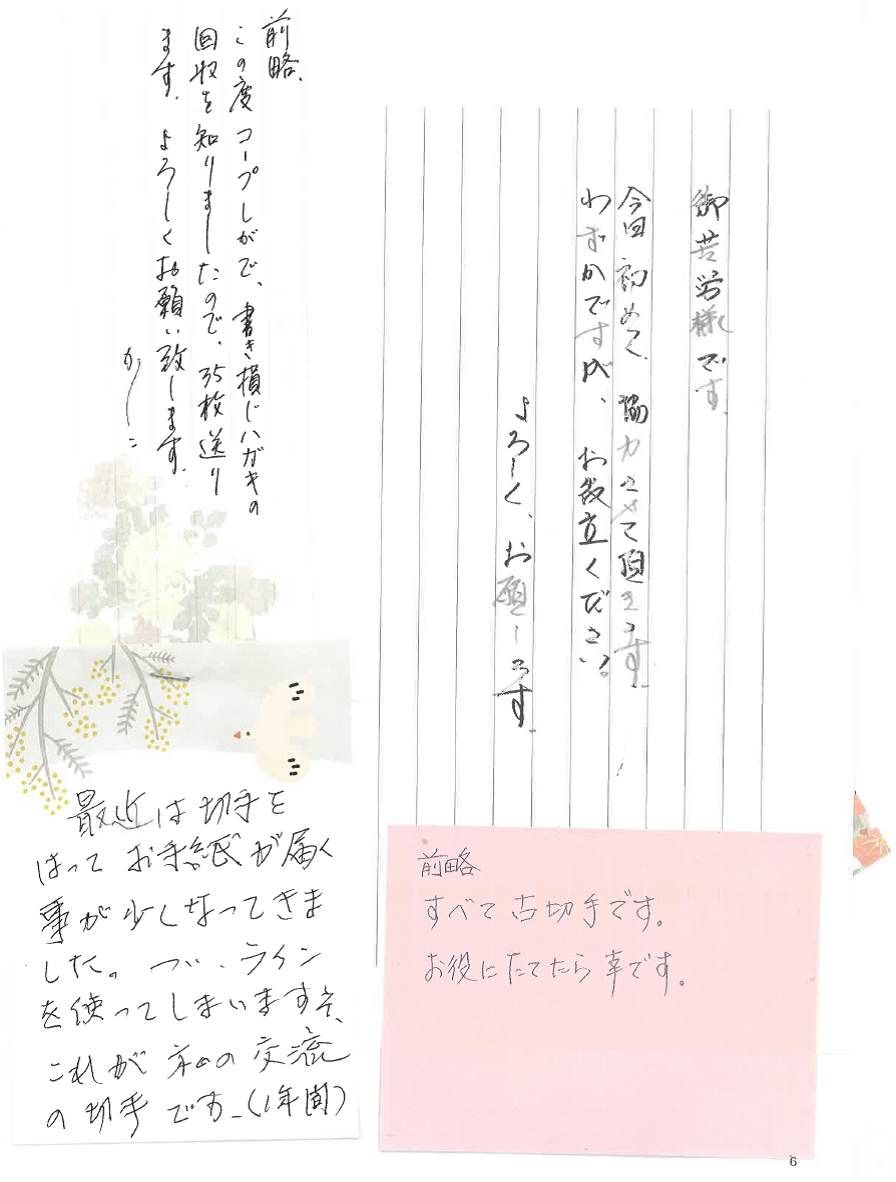 御苦労様です。
今回初めて、協力させて頂きます。
わずかですが、お役立ください。
よろしく、お願します。
前略、
この度コープしがで、書き損じハガキの
回収を知りましたので、35枚送り
ます。よろしくお願い致します。
かしこ
最近は切手を
はってお手紙が届く
事が少くなってきま
した。つい、ライン
を使ってしまいますネ、
これが私の交流
の切手です。(1年間)
前略
すべて古切手です。
お役にたてたら幸です。
6